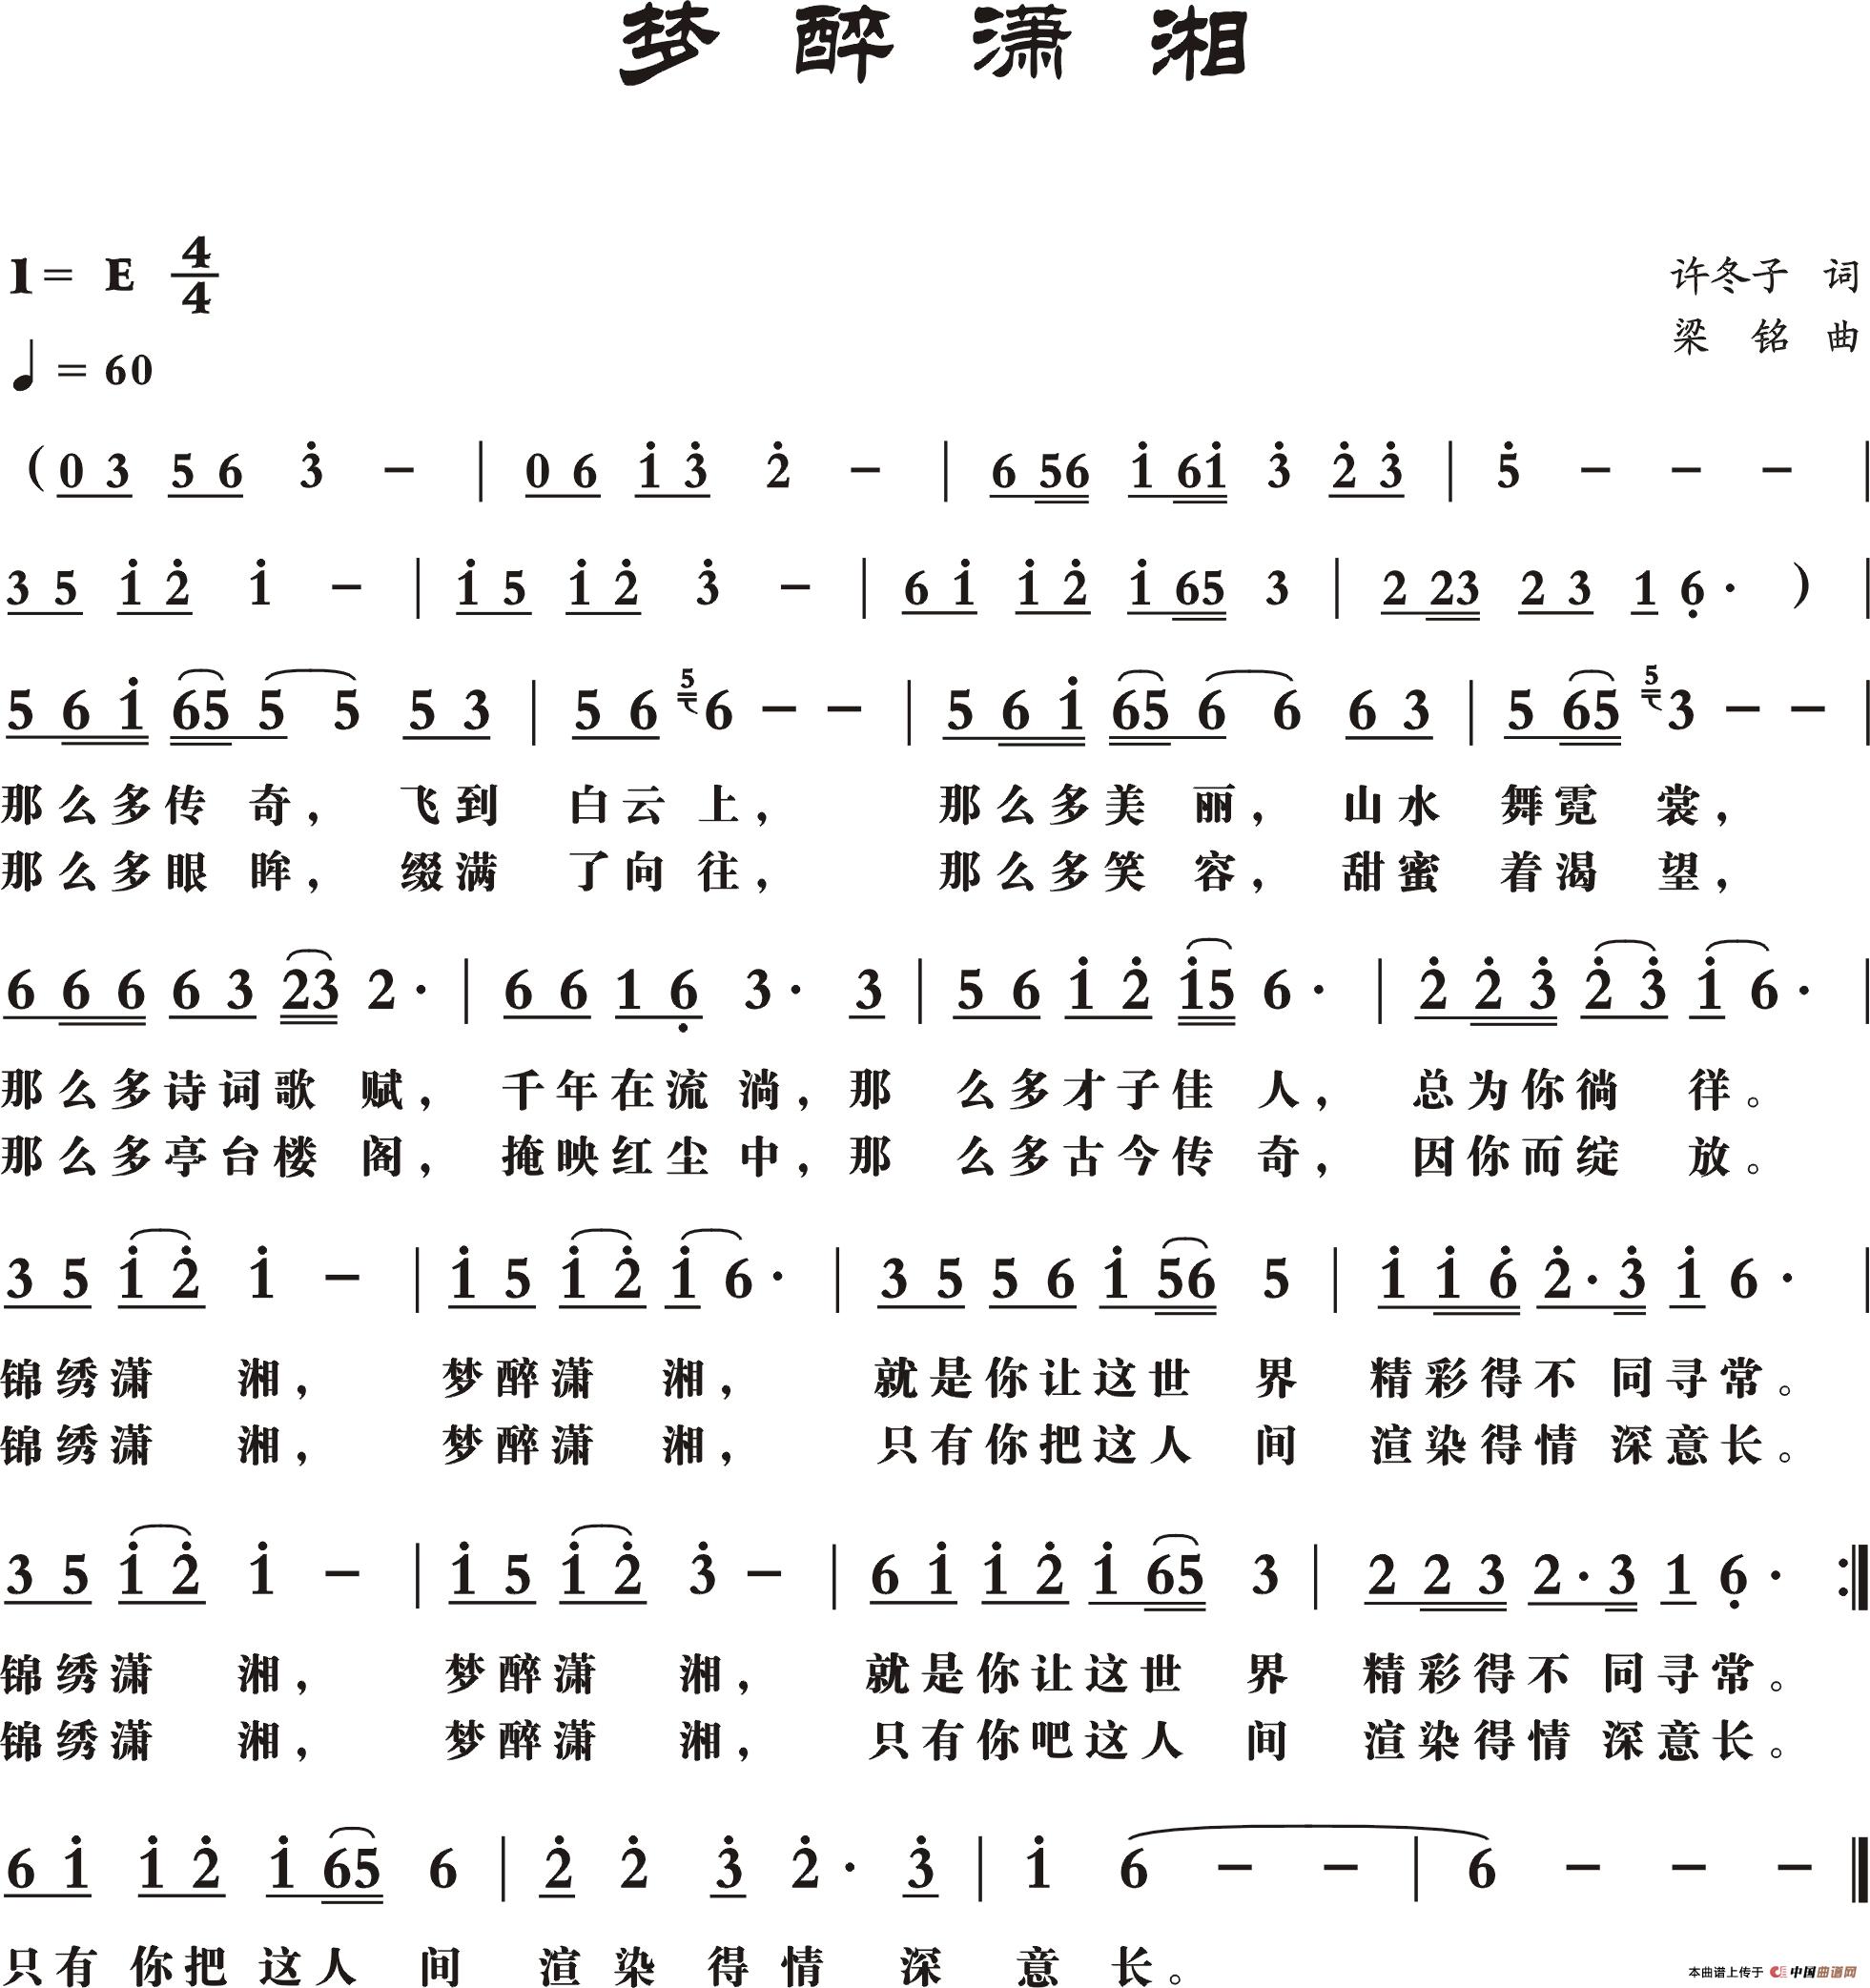 梦 醉 潇 湘
1= E 4/4
许冬子 词
♩ = 60
梁 铭 曲
( 0 3 5 6 3̇ － | 0 6 1̇ 3̇ 2̇ － | 6 56 1̇ 61̇ 3̇ 2̇ 3̇ | 5̇ － － － |
3 5 1̇ 2̇ 1̇ － | 1̇ 5 1̇ 2̇ 3̇ － | 6 1̇ 1̇ 2̇ 1̇ 65 3 | 2 23 2 3 1 6̣ · ) |
5 6 1̇ 65 5 5 5 3 | 5 6 5 6 － － | 5 6 1̇ 65 6 6 6 3 | 5 65 5 3 － － |
那么多传 奇， 飞到 白云 上， 那么多美 丽， 山水 舞霓 裳，
那么多眼 眸， 缀满 了向 往， 那么多笑 容， 甜蜜 着渴 望，
6 6 6 6 3 23 2 · | 6 6 1 6̣ 3 · 3 | 5 6 1̇ 2̇ 1̇5 6 · | 2̇ 2̇ 3̇ 2̇ 3̇ 1̇ 6 · |
那么多诗词歌 赋， 千年在流 淌，那 么多才子佳 人， 总为你徜 徉。
那么多亭台楼 阁， 掩映红尘 中，那 么多古今传 奇， 因你而绽 放。
3 5 1̇ 2̇ 1̇ － | 1̇ 5 1̇ 2̇ 1̇ 6 · | 3 5 5 6 1̇ 56 5 | 1̇ 1̇ 6̇ 2̇ · 3̇ 1̇ 6 · |
锦绣潇 湘， 梦醉潇 湘， 就是你让这世 界 精彩得不 同寻常。
锦绣潇 湘， 梦醉潇 湘， 只有你把这人 间 渲染得情 深意长。
3 5 1̇ 2̇ 1̇ － | 1̇ 5 1̇ 2̇ 3̇ － | 6 1̇ 1̇ 2̇ 1̇ 65 3 | 2 2 3 2 · 3 1 6̣ · :‖
锦绣潇 湘， 梦醉潇 湘， 就是你让这世 界 精彩得不 同寻常。
锦绣潇 湘， 梦醉潇 湘， 只有你吧这人 间 渲染得情 深意长。
6 1̇ 1̇ 2̇ 1̇ 65 6 | 2̇ 2̇ 3̇ 2̇ · 3̇ | 1̇ 6 － － | 6 － － － ‖
只有 你把 这人 间 渲 染 得 情 深 意 长。
本曲谱上传于 中国曲谱网